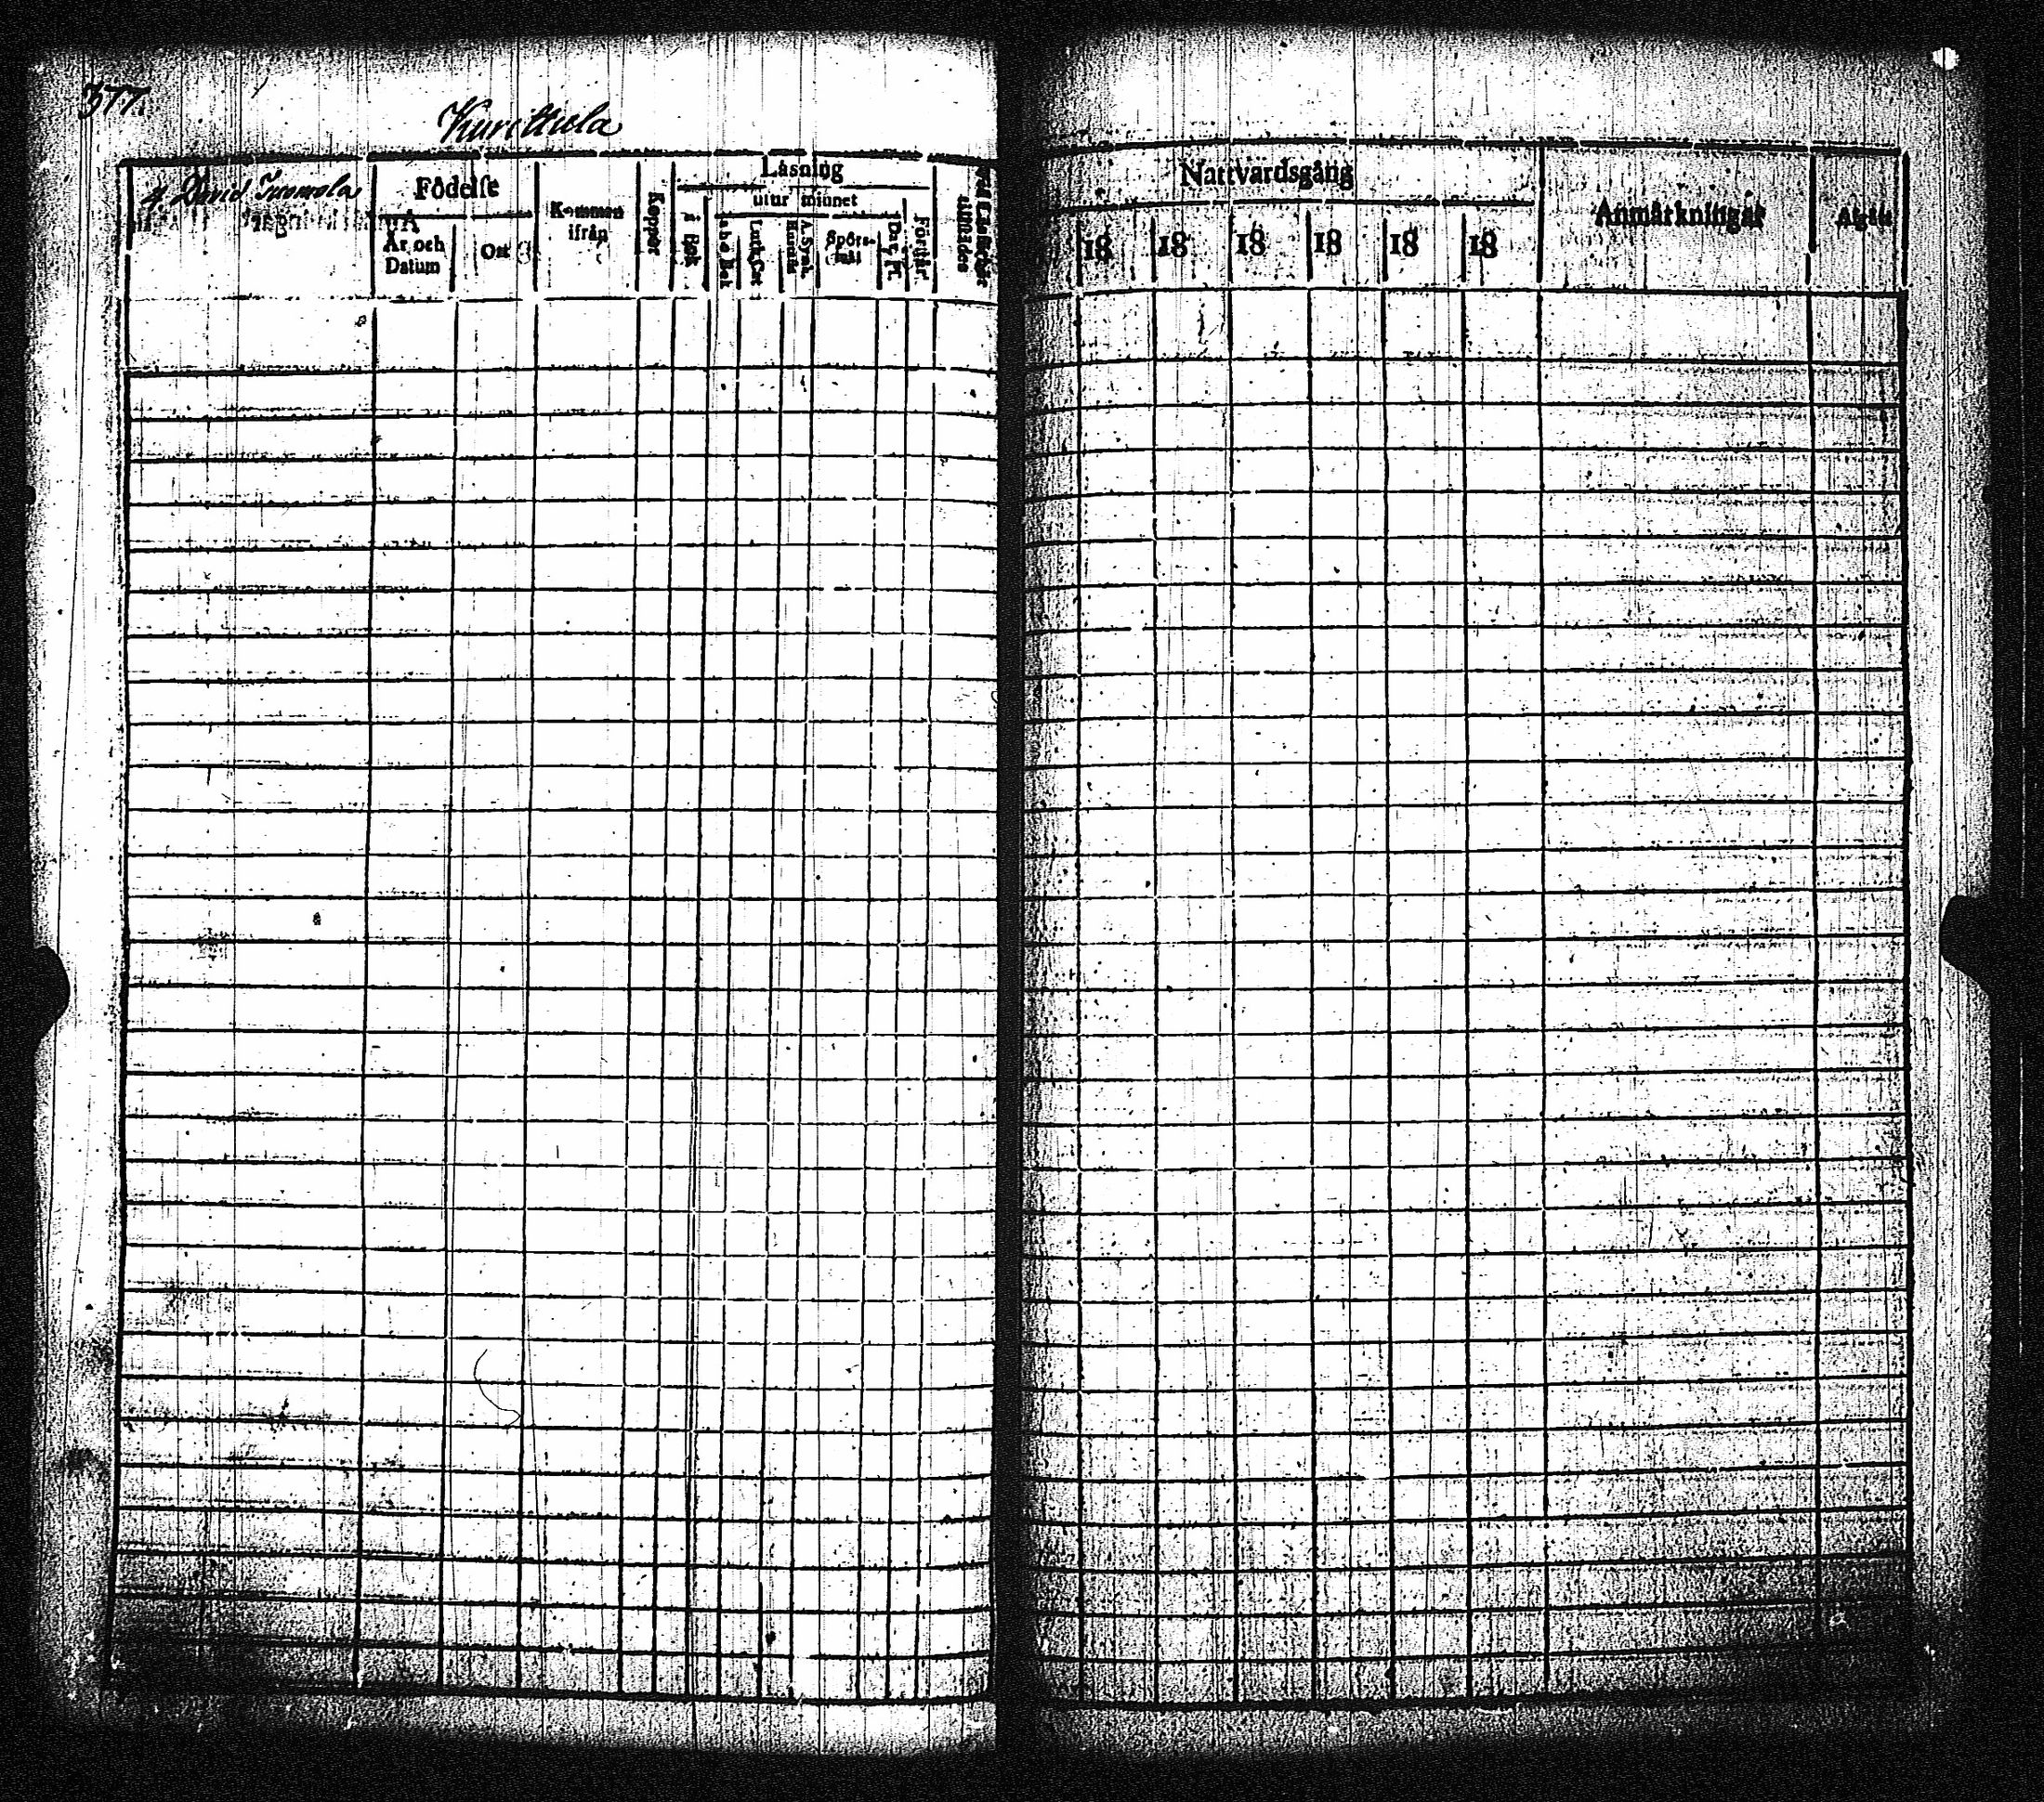 377.
Kurittula
4. David Tuomola
Födelse
År och
Datum
Ort
Kommen
ifrån
Koppor
Läsning
utur minnet
i Bok
a b c Bok
Luth. Cat.
Spörs-
mål
Dav. Ps.
Förstår
Nattvardsgång
18 18 18 18 18 18
Anmärkningar
Afgått